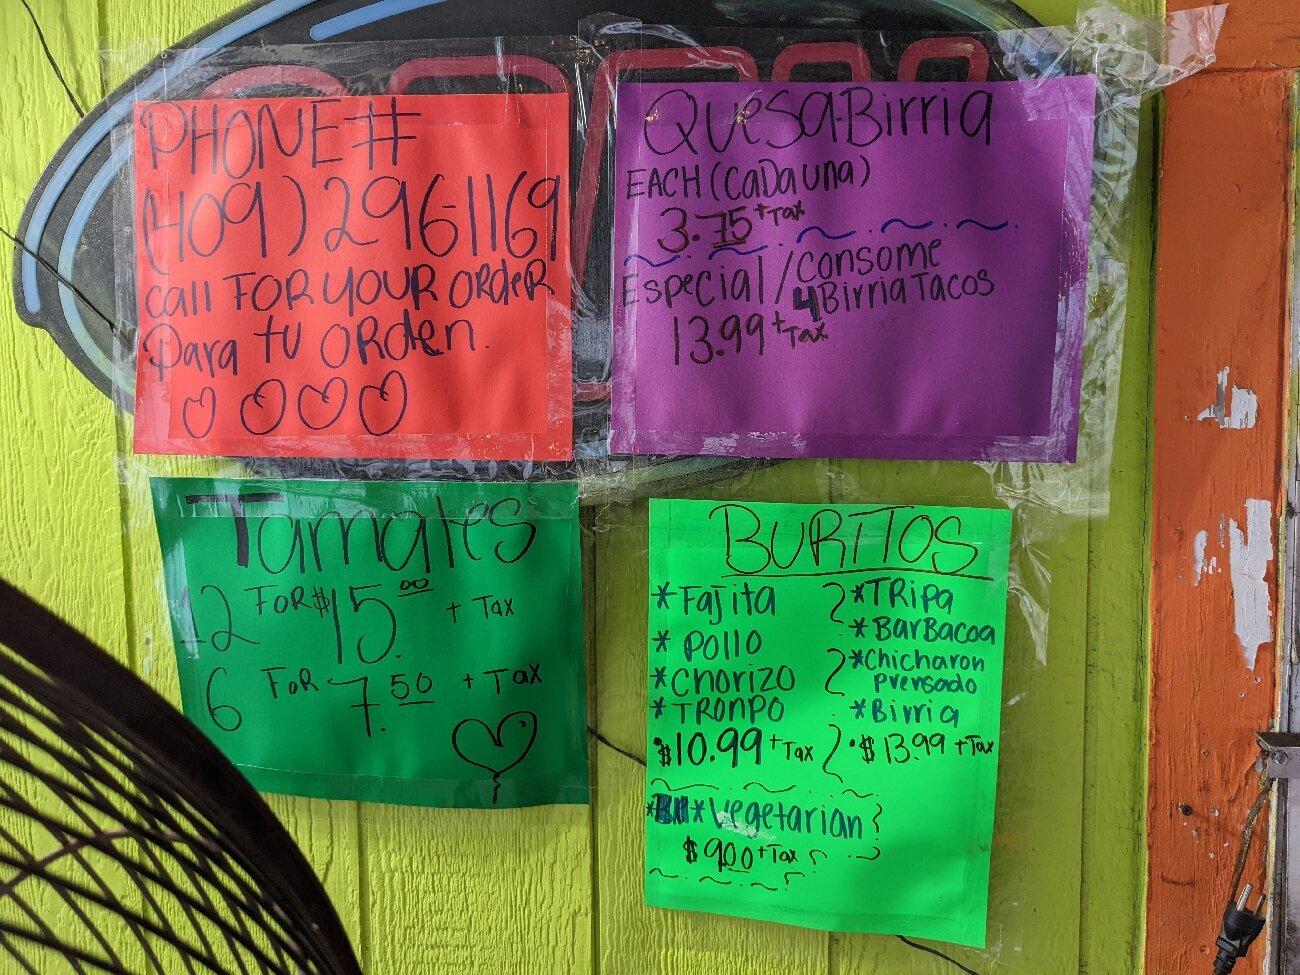 PHONE#
(409) 296-1169
call FOR YOUR ORdeR
Para tu ORden.
QUeSa-Birria
EACH (CaDa una)
3.75 + Tax
Especial / CONSOME
4 Birria Tacos
13.99 + Tax
Tamales
12 FOR $15.00 + Tax
6 FOR 7.50 + Tax
BURITOS
* Fajita
* POllO
* CHORIZO
* TROMPO
$10.99 + Tax
* TRipa
* BarBacoa
* Chicharon
prensado
* Birria
$13.99 + Tax
* Vegetarian
$9.00 + Tax